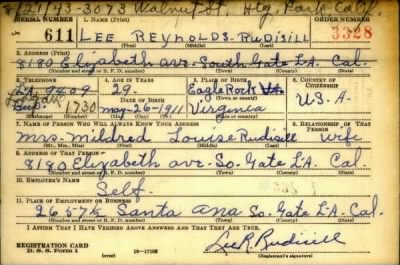 8/21/43-3073 Walnut St. Htg. Park, Calif.
SERIAL NUMBER 1. NAME (Print) ORDER NUMBER
611 LEE REYNOLDS RUDISILL 3328
(First) (Middle) (Last)
3. ADDRESS (Print)
8180 Elizabeth ave. South Gate L.A. Cal.
(Number and street or R. F. D. number) (Town) (County) (State)
3. TELEPHONE 4. AGE IN YEARS 5. PLACE OF BIRTH 6. COUNTRY OF CITIZENSHIP
LA 9409 29. Eagle Rock Va
DATE OF BIRTH (Town or county)
1730 May-26-1911 Virginia U.S.A.
(Mo.) (Day) (Yr.) (State or country)
7. NAME OF PERSON WHO WILL ALWAYS KNOW YOUR ADDRESS 8. RELATIONSHIP OF THAT PERSON
Mrs. Mildred Louise Rudisill Wife
(Mr., Mrs., Miss) (First) (Middle) (Last)
9. ADDRESS OF THAT PERSON
8180 Elizabeth ave. So. Gate L.A. Cal
(Number and street or R. F. D. number) (Town) (County) (State)
10. EMPLOYER'S NAME
Self.
11. PLACE OF EMPLOYMENT OR BUSINESS
2657½ Santa Ana So. Gate L.A. Cal.
(Number and street or R. F. D. number) (Town) (County) (State)
I AFFIRM THAT I HAVE VERIFIED ABOVE ANSWERS AND THAT THEY ARE TRUE.
REGISTRATION CARD
D. S. S. Form 1 (over) 16-17105 Lee R. Rudisill
(Registrant's signature)